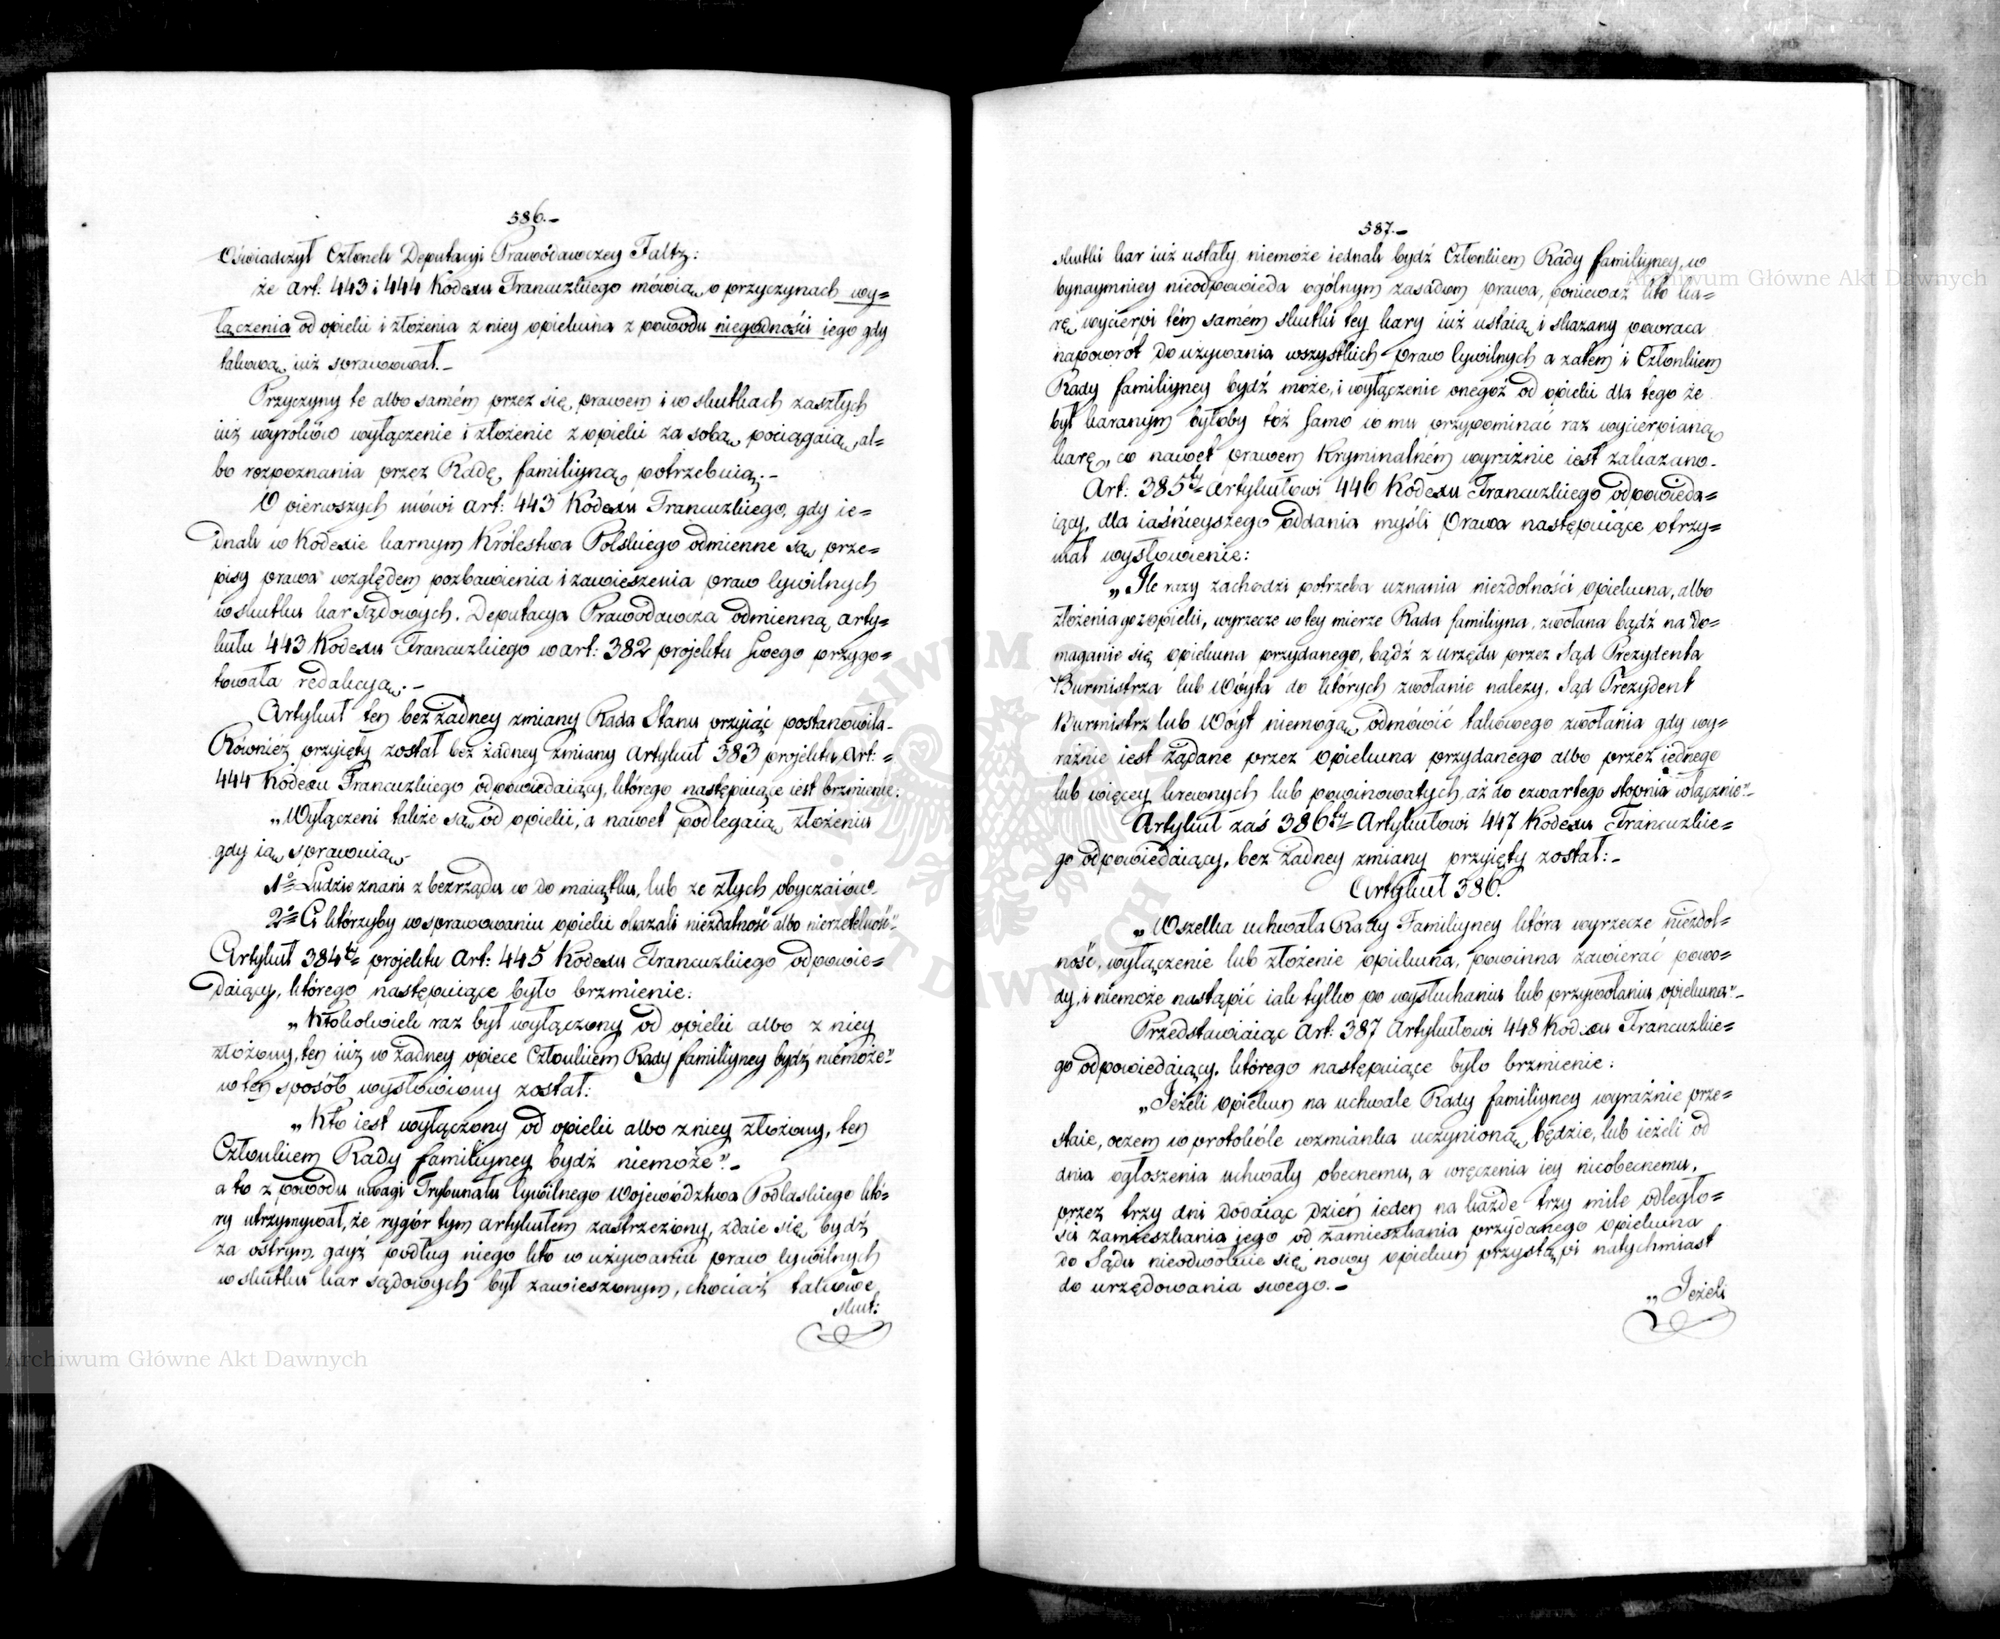 586.–
Oświadczył Członek Deputacyi Prawodawczey Faltz:
że Art: 443 i 444 Kodexu Francuzkiego mówią o przyczynach wy=
łączenia od opieki i złożenia z niey opiekuna z powodu niegodności iego gdy
takową iuż sprawował.–
Przyczyny te albo samém przez się prawem i w skutkach zaszłych
iuż wyroków wyłączenie i złożenie z opieki za sobą pociągaią, al=
bo rozpoznania przez Radę familiyną potrzebuią.–
O pierwszych mówi Art: 443 Kodexu Francuzkiego, gdy ie=
dnak w Kodexie karnym Królestwa Polskiego odmienne są prze=
pisy prawa względem pozbawienia i zawieszenia praw Cywilnych
w skutku kar sądowych. Deputacya Prawodawcza odmienną Arty=
kułu 443 Kodexu Francuzkiego w Art: 382 projektu swego przygo=
towała redakcyą.–
Artykuł ten bez żadney zmiany Rada Stanu przyiąć postanowiła.–
Również przyięty został bez żadney zmiany Artykuł 383 projektu Art:=
444 Kodexu Francuzkiego odpowiedaiący, którego następuiące iest brzmienie:
„Wyłączeni także są od opieki, a nawet podlegaią złożeniu
gdy ią sprawuią.
1o= Ludzie znani z bezrządu w do maiątku, lub ze złych obyczaiów.
2o= Ci którzyby w sprawowaniu opieki okazali niezdatność albo nierzetelność".
Artykuł 384ty= projektu Art: 445 Kodexu Francuzkiego odpowie=
daiący, którego następuiące było brzmienie:
„Ktokolwiek raz był wyłączony od opieki albo z niey
złożony, ten iuż w żadney opiece Członkiem Rady familiyney bydź niemoże".
w ten sposób wysłowiony został:
„Kto iest wyłączony od opieki albo z niey złożony, ten
Członkiem Rady familiyney bydź niemoże".–
a to z powodu uwagi Trybunału Cywilnego Województwa Podlaskiego któ=
ry utrzymywał, że rygór tym artykułem zastrzeżony, zdaie się bydź
za ostrym, gdyż podług niego kto w używaniu praw Cywilnych
w skutku kar sądowych był zawieszonym, chociaż takowe
skut:
587.–
skutki kar iuż ustały niemoże iednak bydź Członkiem Rady familiyney, co
bynaymniey nieodpowieda ogólnym zasadom prawa, ponieważ kto ka=
rę wycierpi tém samém skutki tey kary iuż ustaią i skazany powraca
napowrót do używania wszystkich praw Cywilnych a zatem i Członkiem
Rady familiyney bydź może, i wyłączenie onegoż od opieki dla tego że
był karanym byłoby toż samo co mu przypominać raz wycierpianą
karę, co nawet prawem Kryminalném wyraźnie iest zakazano.
Art: 385ty= Artykułowi 446 Kodexu Francuzkiego odpowieda=
iący, dla iaśnieyszego oddania myśli Prawa następuiące otrzy=
mał wysłowienie:
„Ile razy zachodzi potrzeba uznania niezdolności opiekuna, albo
złożenia go z opieki, wyrzecze w tey mierze Rada familiyna, zwołana bądź na do=
maganie się opiekuna przydanego, bądź z urzędu przez Sąd Prezydenta
Burmistrza lub Wóyta do których zwołanie należy. Sąd Prezydent
Burmistrz lub Wóyt niemogą odmówić takowego zwołania gdy wy=
raźnie iest żądane przez opiekuna przydanego albo przez iednego
lub więcey krewnych lub powinowatych, aż do czwartego stopnia włącznie".–
Artykuł zaś 386ty= Artykułowi 447 Kodexu Francuzkie=
go odpowiedaiący, bez żadney zmiany przyięty został:–
Artykuł 386.
„Wszelka uchwała Rady Familiyney która wyrzecze niezdol=
ność, wyłączenie lub złożenie opiekuna, powinna zawierać powo=
dy, i niemoże nastąpić iak tylko po wysłuchaniu lub przywołaniu opiekuna".–
Przedstawiaiąc Art: 387 Artykułowi 448 Kodexu Francuzkie=
go odpowiedaiący, którego następuiące było brzmienie:
„Jeżeli opiekun na uchwale Rady familiyney wyraźnie prze=
staie, oczem w protokóle wzmianka uczynioną będzie, lub ieżeli od
dnia ogłoszenia uchwały obecnemu, a wręczenia iey nieobecnemu,
przez trzy dni dodaiąc dzień ieden na każde trzy mile odległo=
ści zamieszkania jego od zamieszkania przydanego opiekuna
do Sądu nieodwołuie się, nowy opiekun przystąpi natychmiast
do urzędowania swego.–
„Jeżeli
Archiwum Główne Akt Dawnych
Archiwum Główne Akt Dawnych